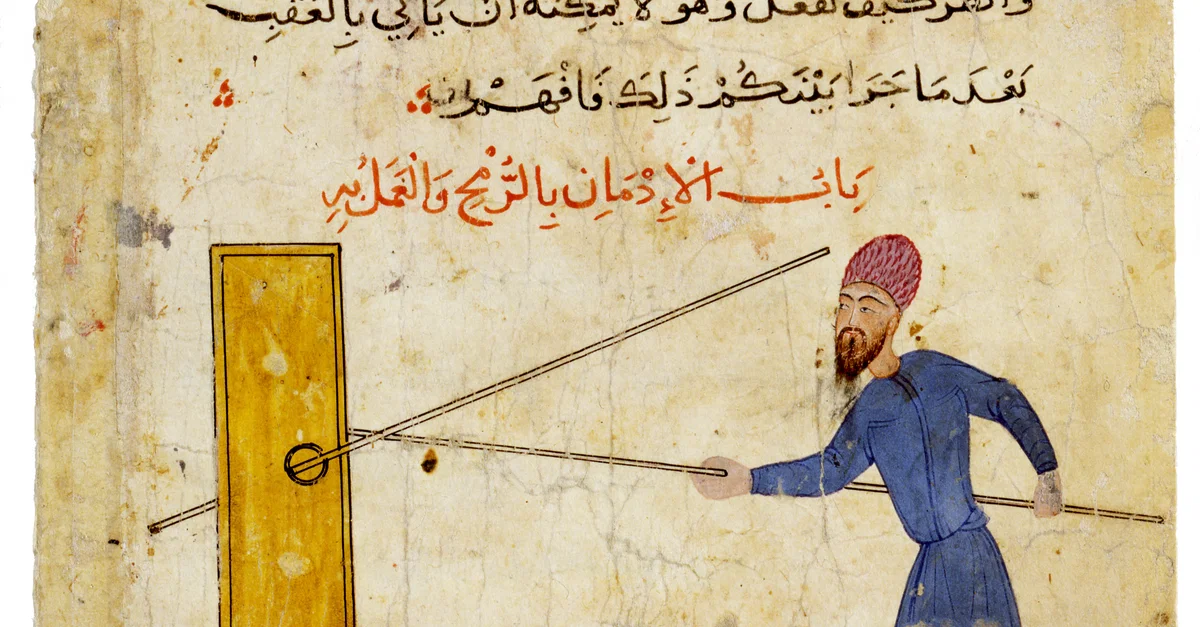 وانظر كيف تفعل وهو لا يمكنه ان ياتي بالعقب
بَعْدَ مَا جَرَا بَيْنَكُمْ ذَلِكَ فَافْهَمْ
بَابُ الْإِدْمَانِ بِالرُّمْحِ وَالْعَمَلُ بِهِ